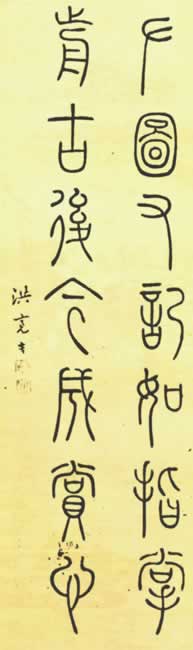 左圖右記如指掌
前古後今咸賞心
洪亮吉